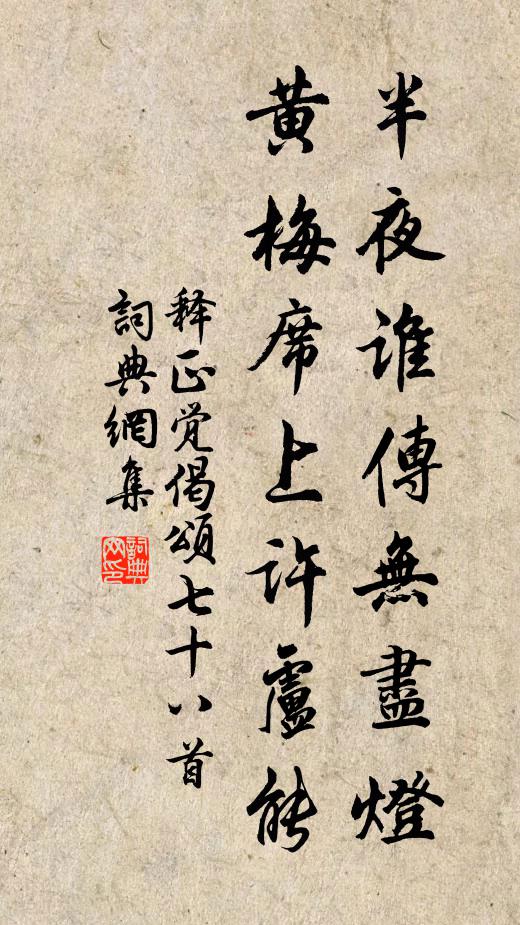 半夜誰傳無盡燈
黃梅席上許盧能
释正觉偈頌七十八首
詞典網集
詞典网印